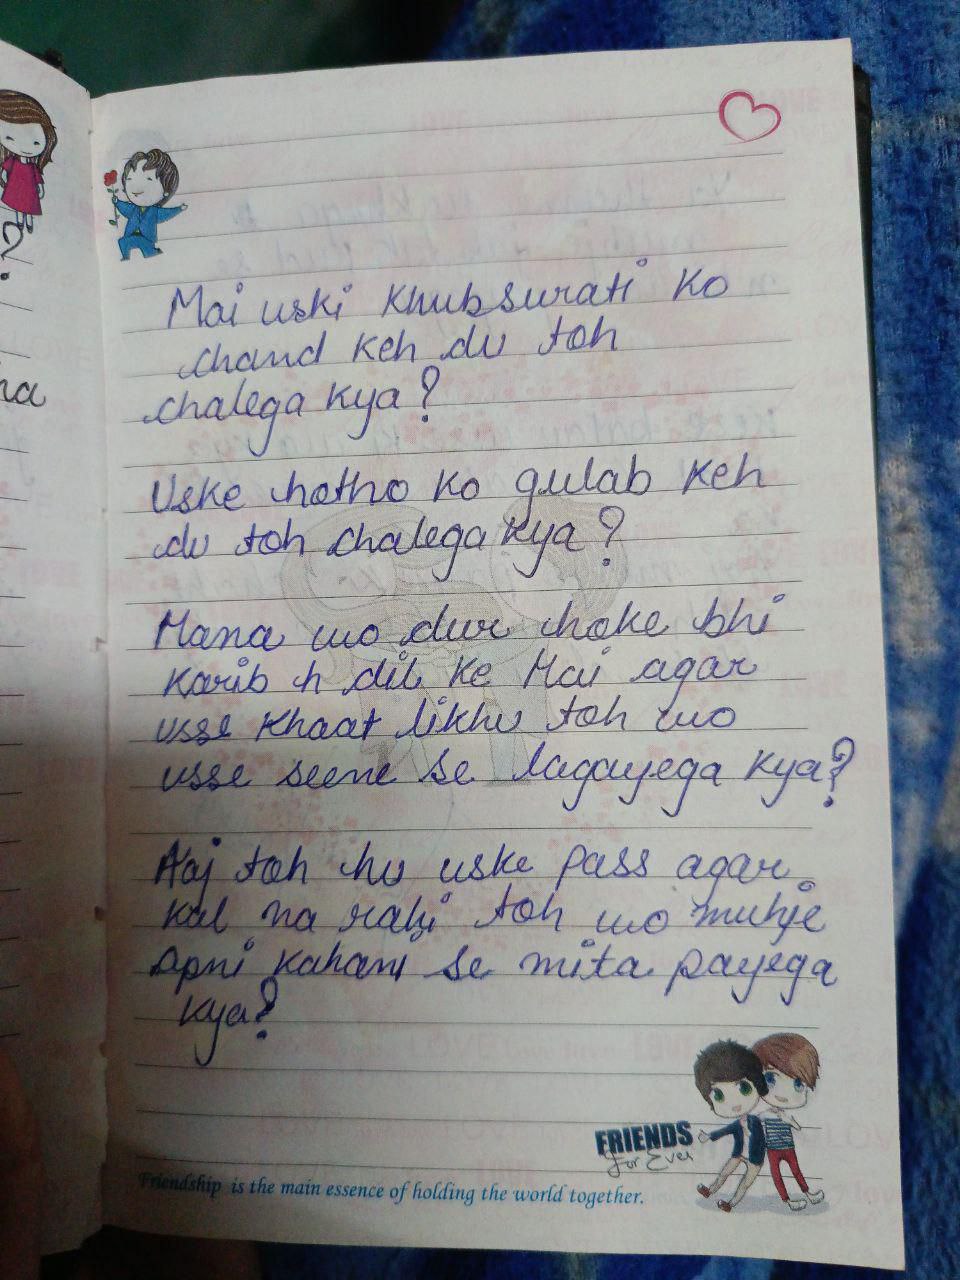 2.
na
Mai uski khubsurati ko
chand keh du toh
chalega kya?
Uske hotho ko gulab keh
du toh chalega kya?
Mana wo dur hoke bhi
karib h dil ke Mai agar
usse khaat likhu toh wo
usse seene se lagayega kya?
Aaj toh hu uske pass agar
kal na rahi toh wo muhje
apni kahani se mita payega
kya?
FRIENDS
For Ever
Friendship is the main essence of holding the world together.